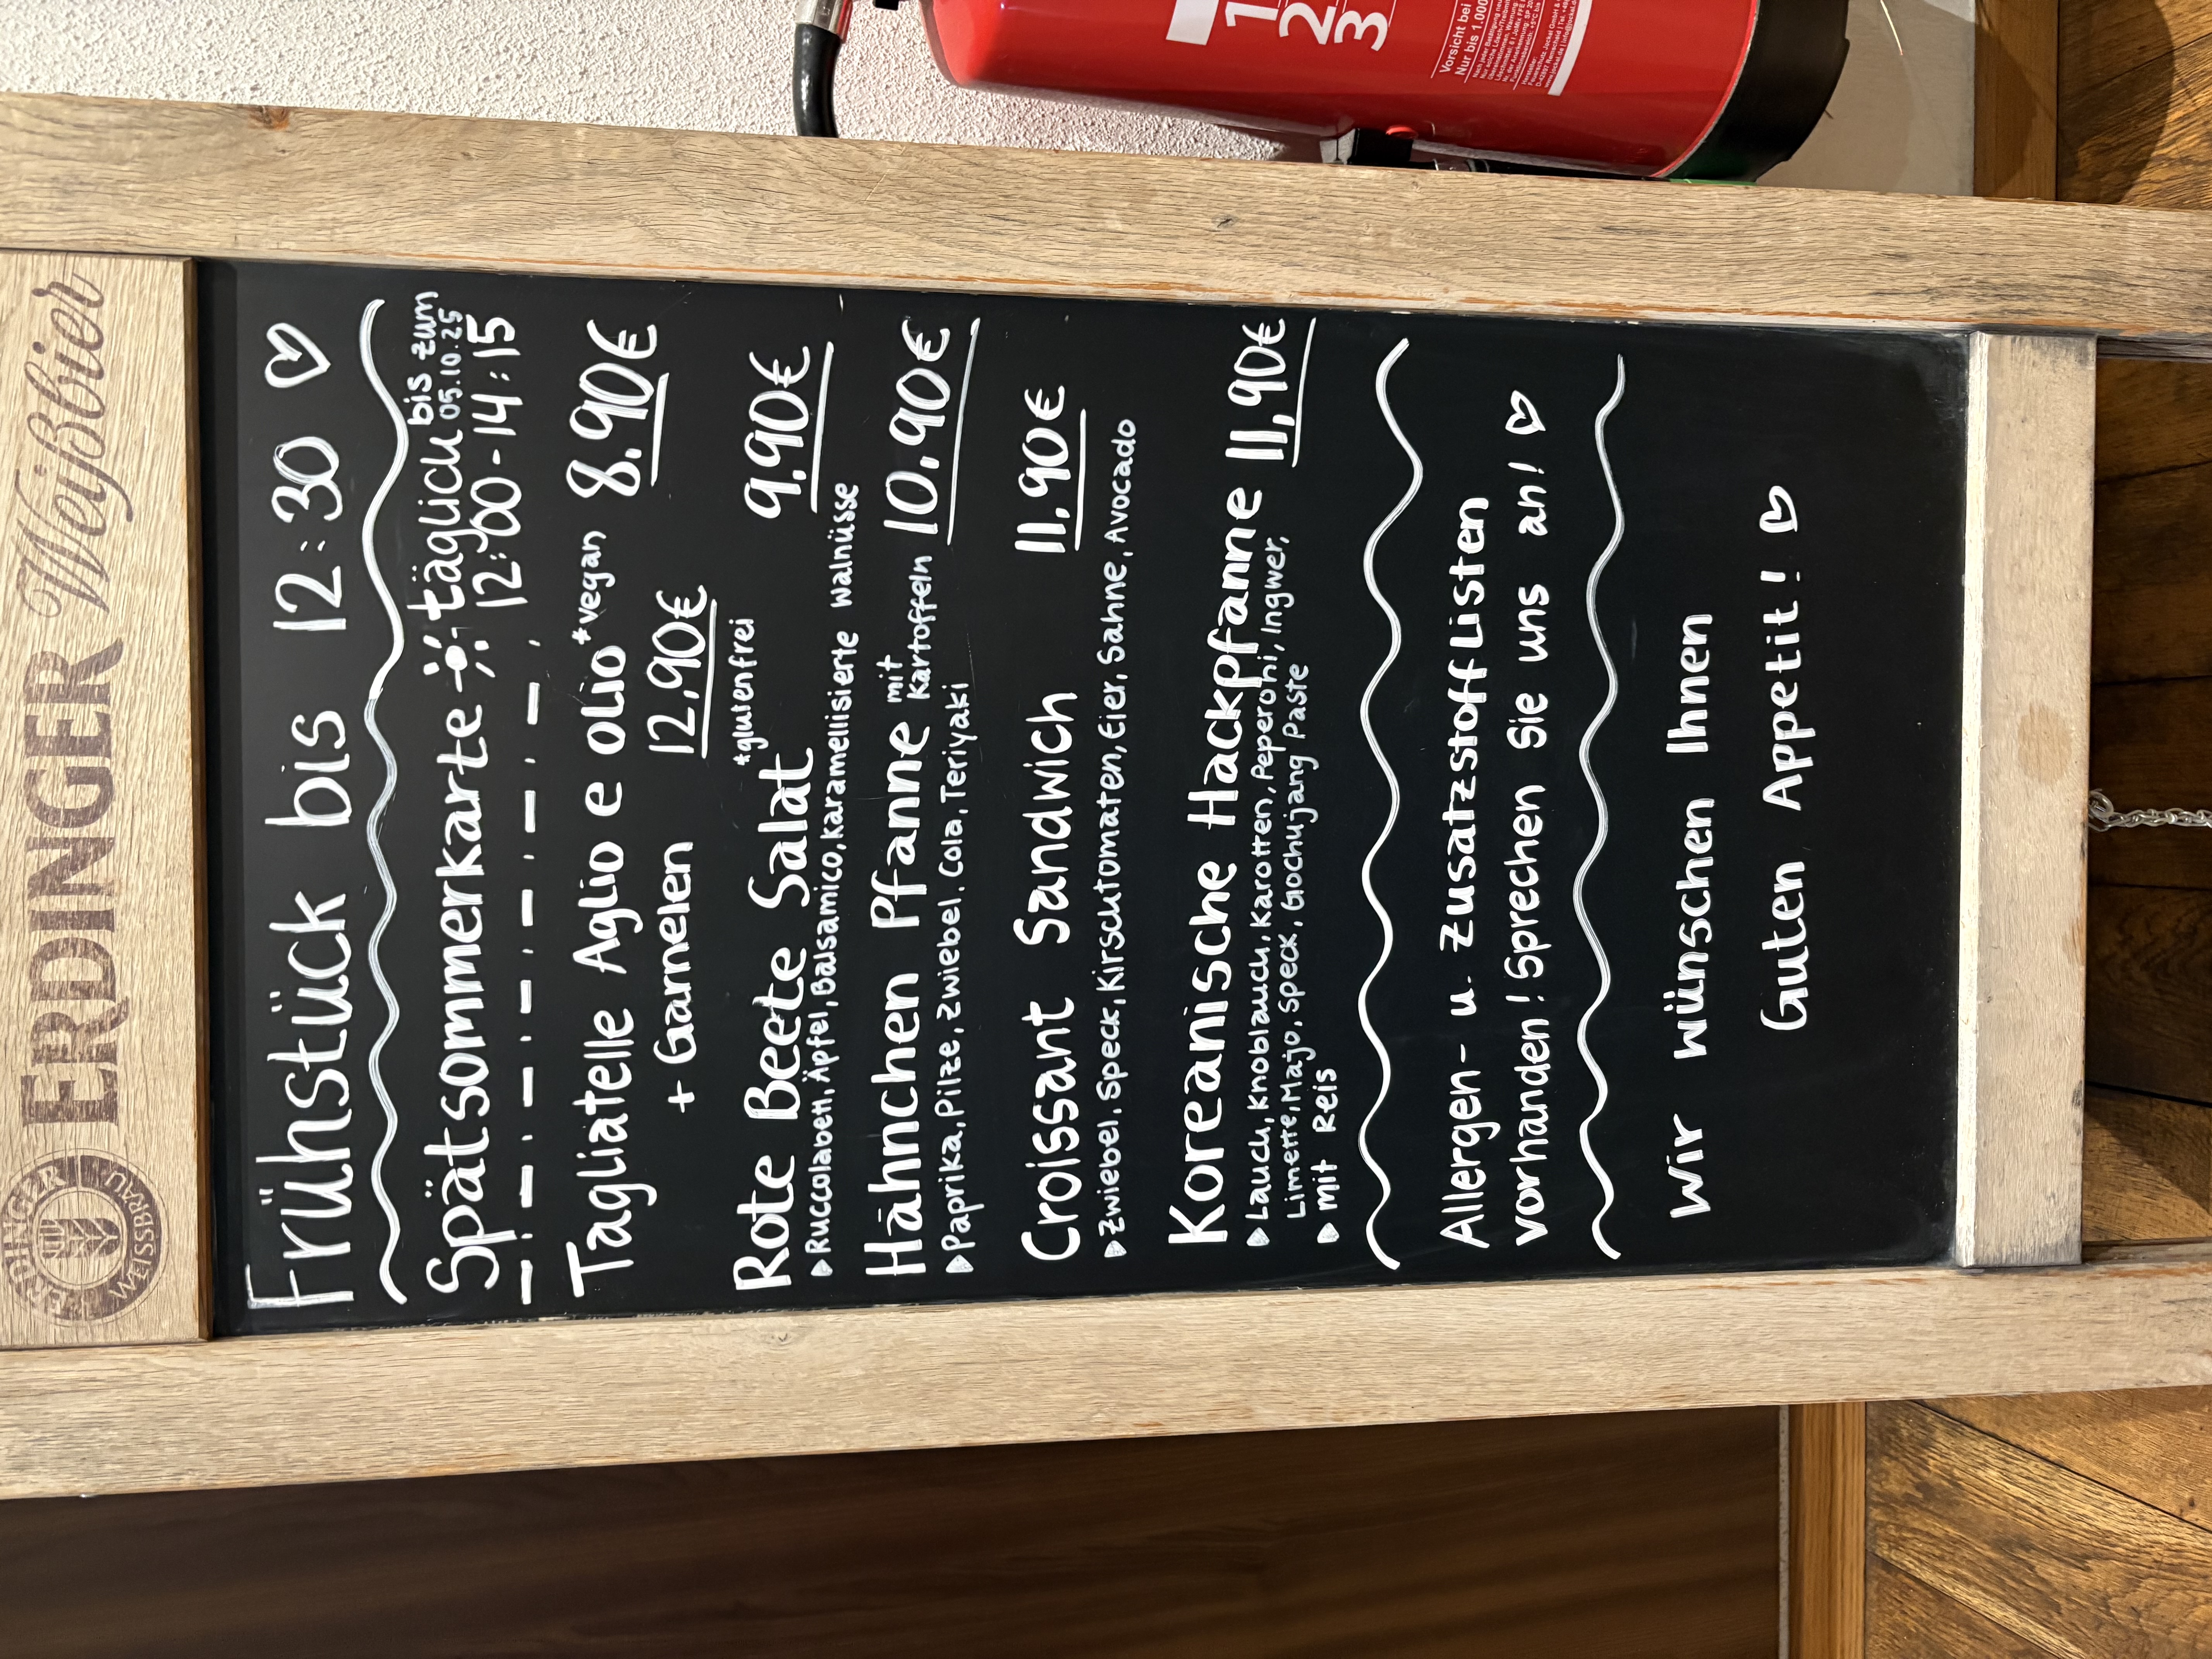 ERDINGER Weißbier
ERDINGER
WEISSBRÄU
Frühstück bis 12:30
Spätsommerkarte täglich bis zum
05.10.25
12:00-14:15
Tagliatelle Aglio e olio *vegan 8,90€
+ Garnelen 12,90€
*glutenfrei
Rote Beete Salat 9,90€
Ruccolabett, Äpfel, Balsamico, karamellisierte Walnüsse
Hähnchen Pfanne mit Kartoffeln 10,90€
Paprika, Pilze, Zwiebel, Cola, Teriyaki
Croissant Sandwich 11,90€
Zwiebel, Speck, Kirschtomaten, Eier, Sahne, Avocado
Koreanische Hackpfanne 11,90€
Lauch, Knoblauch, Karotten, Peperoni, Ingwer,
Limette, Majo, Speck, Gochujang Paste
mit Reis
Allergen- u. Zusatzstofflisten
vorhanden! Sprechen Sie uns an!
Wir wünschen Ihnen
Guten Appetit!
1
2
3
Vorsicht bei
Nur bis 1.000